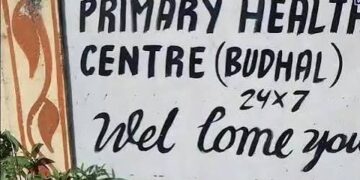 PRIMARY HEALTH
CENTRE (BUDHAL)
24x7
Wel Come you